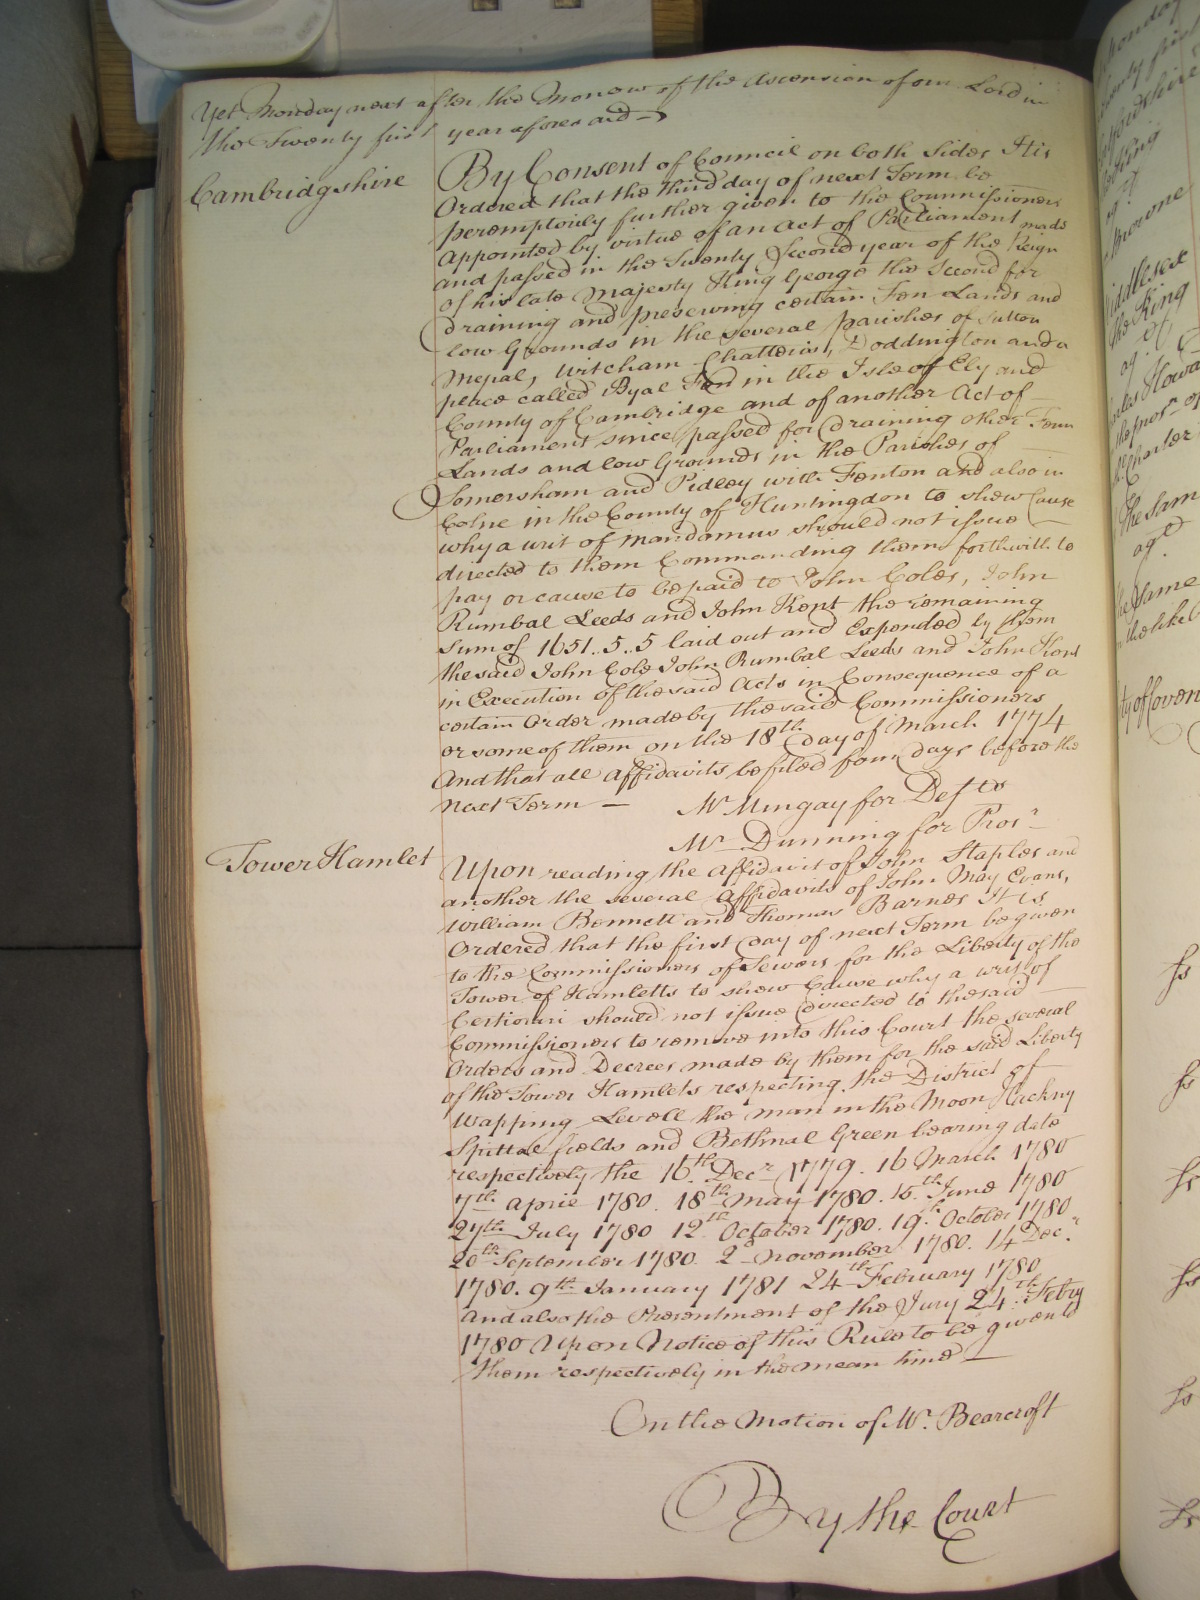 Yet Monday next after the Morrow of the Ascension of our Lord in
the Twenty first year aforesaid
Cambridgshire
By Consent of Council on both Sides It is
Ordered that the third day of next Term be
peremptorily further given to the Commissioners
appointed by virtue of an Act of Parliament made
and passed in the Twenty Second year of the Reign
of his late Majesty King George the Second for
draining and preserving certain Fen Lands and
low Grounds in the several parishes of Sutton
Mepal, Witcham Chatteris, Doddington and a
peace called Byal Fen in the Isle of Ely and
County of Cambridge and of another Act of
Parliament since passed for draining other Fenn
Lands and low Grounds in the Parishes of
Somersham and Pidley with Fenton and also in
Colne in the County of Huntingdon to shew Cause
why a writ of Mandamus should not issue
directed to them Commanding them forthwith to
pay or cause to be paid to John Coles, John
Rumbal Leeds and John Kent the remaining
sum of 1651..5..5 laid out and Expended by them
the said John Cole John Rumbal Leeds and John Kent
in Execution of the said Acts in Consequence of a
certain Order made by the said Commissioners
or some of them on the 18th day of March 1774
And that all Affidavits be filed four days before the
next Term —
Mr Mingay for Defts
Mr Dunning for Prosr
Tower Hamlet
Upon reading the Affidavit of John Staples and
another the several Affidavits of John May Evans,
William Bennett and Thomas Barnes It is
Ordered that the first day of next Term be given
to the Commissioners of Sewers for the Liberty of the
Tower of Hamletts to shew Cause why a writ of
Certiorari should not issue directed to the said
Commissioners to remove into this Court the several
Orders and Decrees made by them for the said Liberty
of the Tower Hamlets respecting the District of
Wapping Levell the man in the Moon Hackny
Spittle fields and Bethnal Green bearing date
respectively the 16th Decr 1779. 16 March 1780
7th April 1780. 18th May 1780. 15th June 1780
27th July 1780 12th October 1780. 19th October 1780
20th September 1780. 2d November 1780. 14 Decr
1780. 9th January 1781 24th February 1780
And also the Presentment of the Jury 24th Febry
1780 Upon Notice of this Rule to be given to
them respectively in the mean time —
On the Motion of Mr. Bearcroft
By the Court